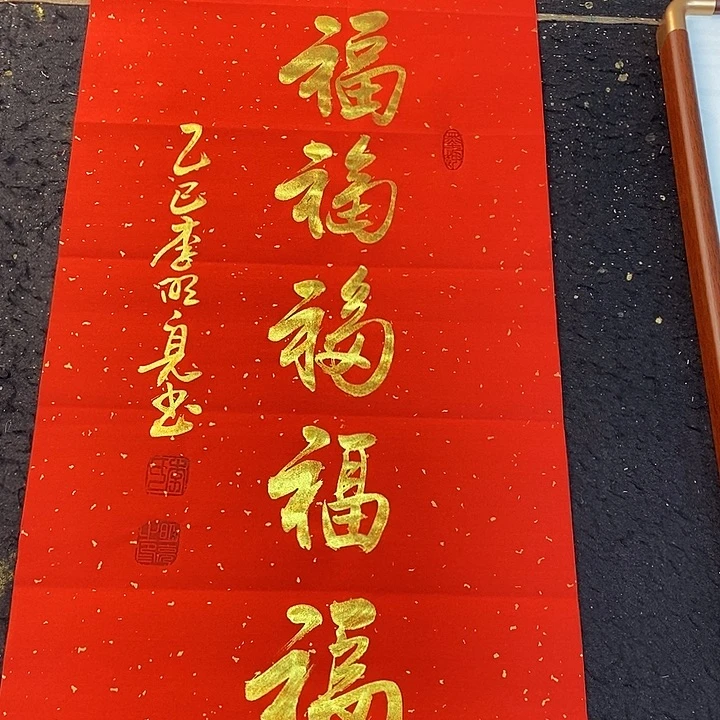 福
福
福
福
福
乙巳李明亮书